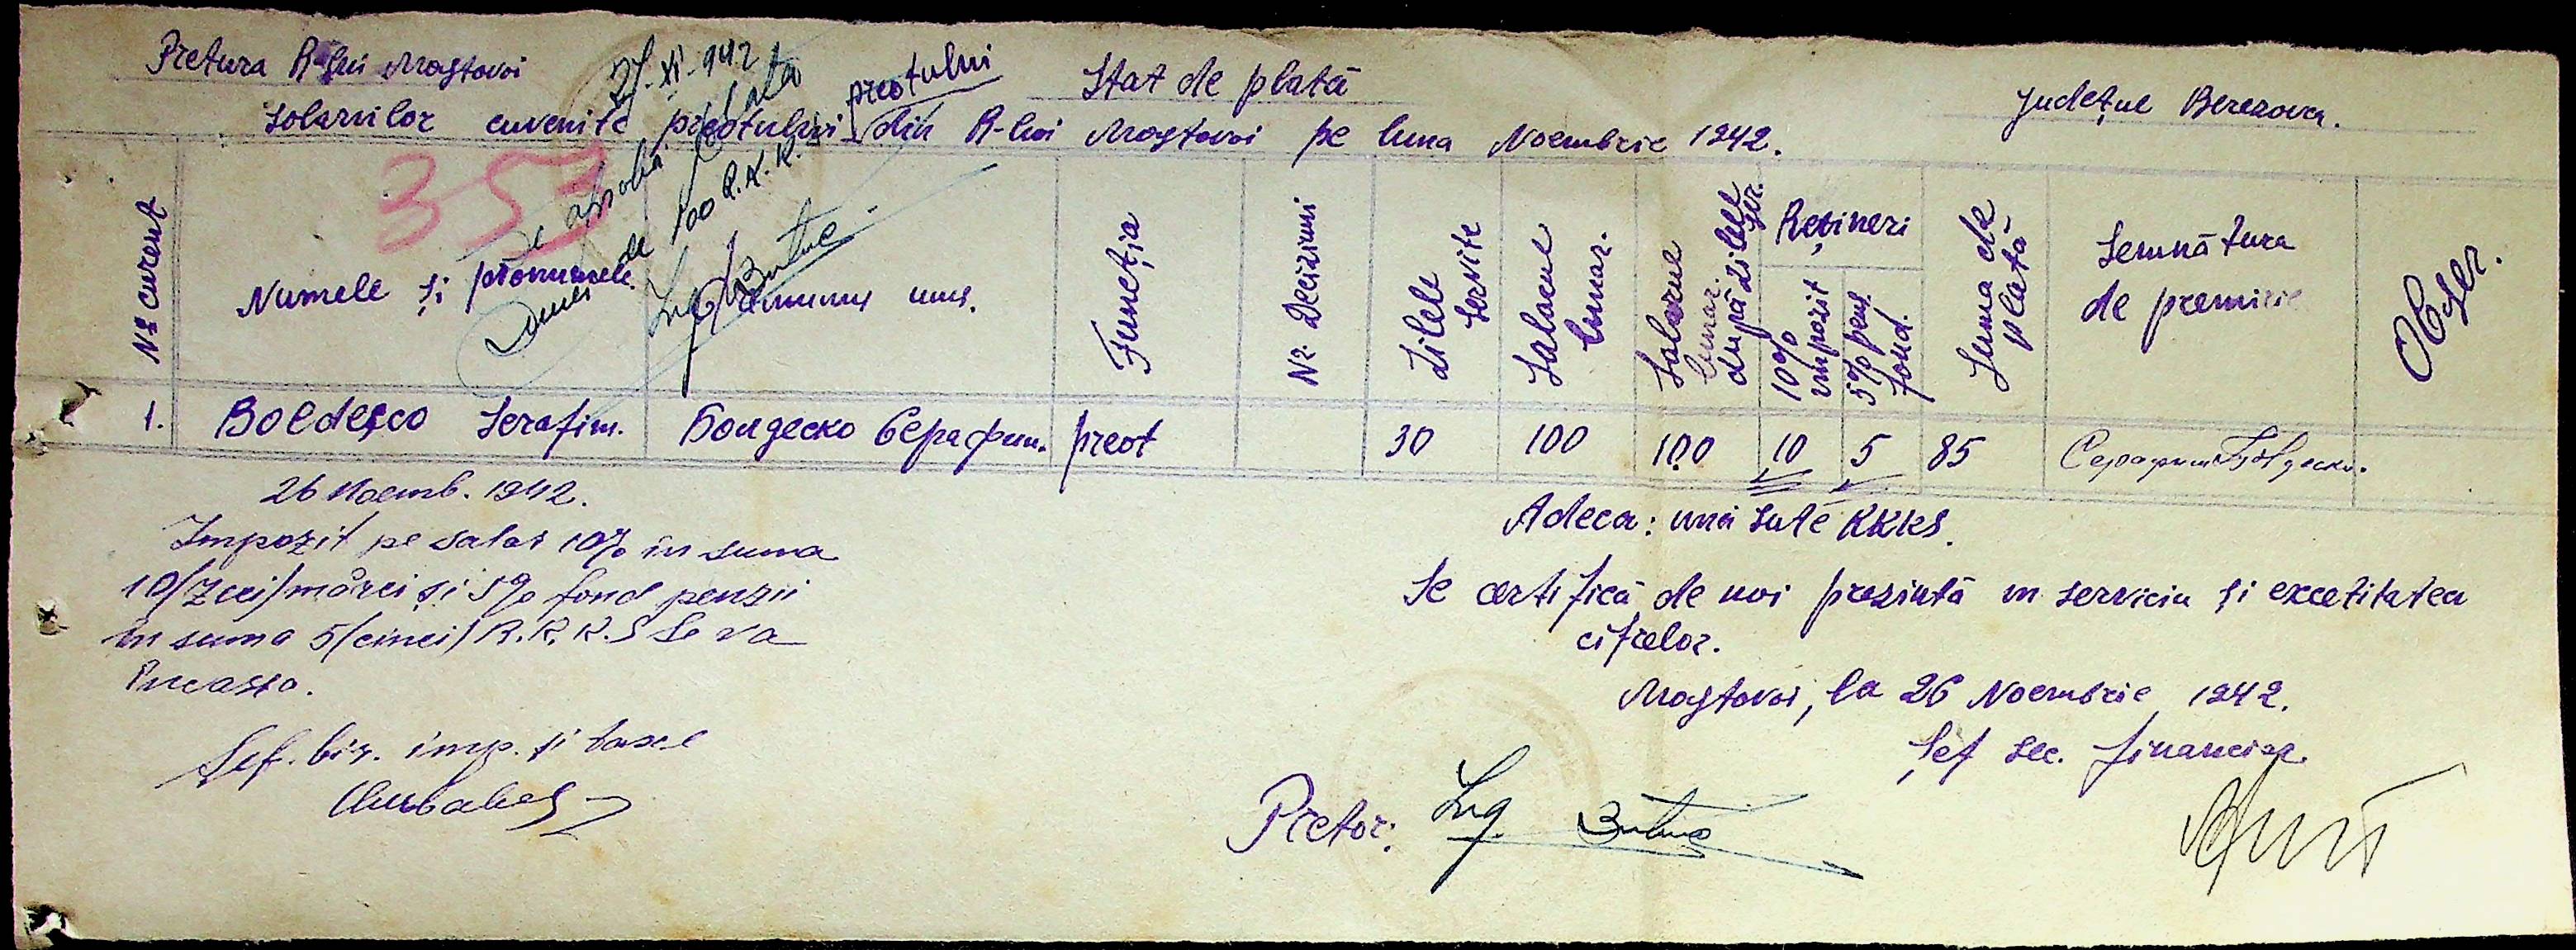 Pretura R-lui Mostovoi
Stat de plată
Județul Berezovca.
27-XI-942
salariilor cuvenite preotului preotului din R-lui Mostovoi pe luna Noembrie 1942.
353
Se aprobă plata
de 100 R.K.K.S
Ing Butuc
Nș curent
Numele și pronumele
Funcția
Nr. Decizimi
Zilele servite
Salarul lunar.
Salarul lunar. după zilele ser.
Rețineri
10% impozit
5% pens fond.
Suma de plată
Semnătura de premirie
Obser.
1. Boldesco Serafim. Болдеско Серафим. preot 30 100 100 10 5 85 Серафим Болдеско.
26 Noemb. 1942.
Impozit pe salar 10% în suma
10/zeci/mărci și 5% fond pensii
în suma 5/cinci/ R.K.K.S se va
încassa.
Șef. bir. imp. și taxe
Adeca: una sută RKKS.
Se certifică de noi prezintă în serviciu și exactitatea
cifrelor.
Mostovoi, la 26 Noembrie 1942.
Șef sec. financiar
Pretor: Ing Butuc